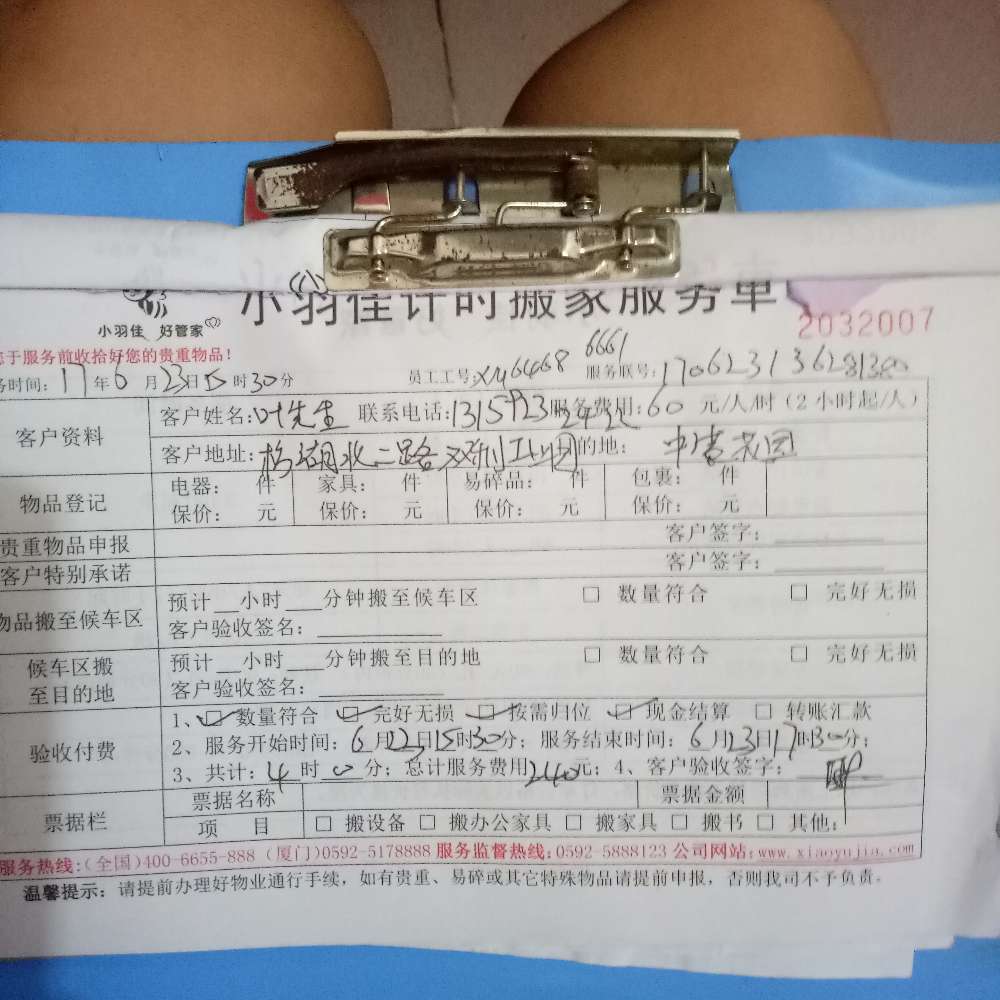 小羽佳计时搬家服务单
小羽佳 好管家
2032007
于服务前收拾好您的贵重物品！
务时间：17年6月23日15时30分 员工工号： 6661 服务联号：
客户资料
客户姓名：叶先生 联系电话： 服务费用：60元/人/时（2小时起/人）
客户地址： 目的地：
物品登记
电器： 件 家具： 件 易碎品： 件 包裹： 件
保价： 元 保价： 元 保价： 元 保价： 元
贵重物品申报 客户签字：
客户特别承诺 客户签字：
物品搬至候车区
预计__小时___分钟搬至候车区 □ 数量符合 □ 完好无损
客户验收签名：
候车区搬
至目的地
预计__小时___分钟搬至目的地 □ 数量符合 □ 完好无损
客户验收签名：
验收付费
1、☑数量符合 ☑完好无损 ☑按需归位 ☑现金结算 □ 转账汇款
2、服务开始时间：6月22日15时30分；服务结束时间：6月23日17时30分；
3、共计：4时0分；总计服务费用240元；4、客户验收签字：
票据栏
票据名称 票据金额
项 目 □ 搬设备 □ 搬办公家具 □ 搬家具 □ 搬书 □ 其他：
服务热线：(全国)400-6655-888 (厦门)0592-5178888 服务监督热线：0592-5888123 公司网站：www.xiaoyujia.com
温馨提示：请提前办理好物业通行手续，如有贵重、易碎或其它特殊物品请提前申报，否则我司不予负责。